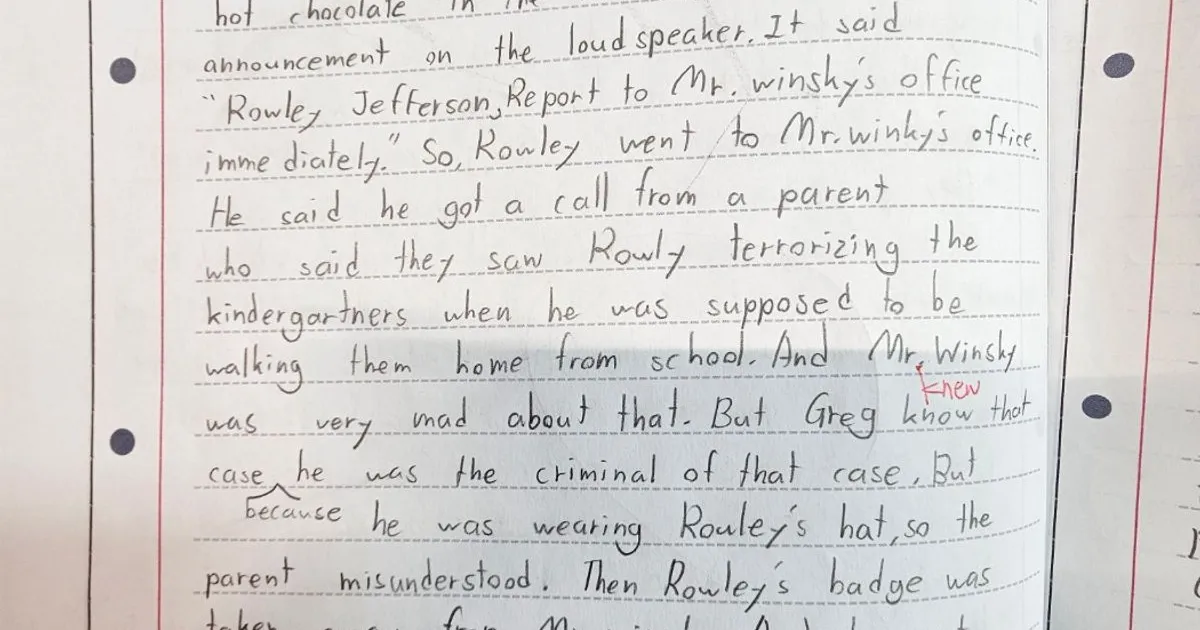 hot chocolate in the
announcement on the loud speaker. It said
"Rowley Jefferson, Report to Mr. winsky's office
imme diately." So, Rowley went to Mr. winky's office.
He said he got a call from a parent
who said they saw Rowly terrorizing the
kindergartners when he was supposed to be
walking them home from school. And Mr. Winsky
knew
was very mad about that. But Greg know that
case he was the criminal of that case, But
because he was wearing Rouley's hat, so the
parent misunderstood. Then Rowley's badge was
taken